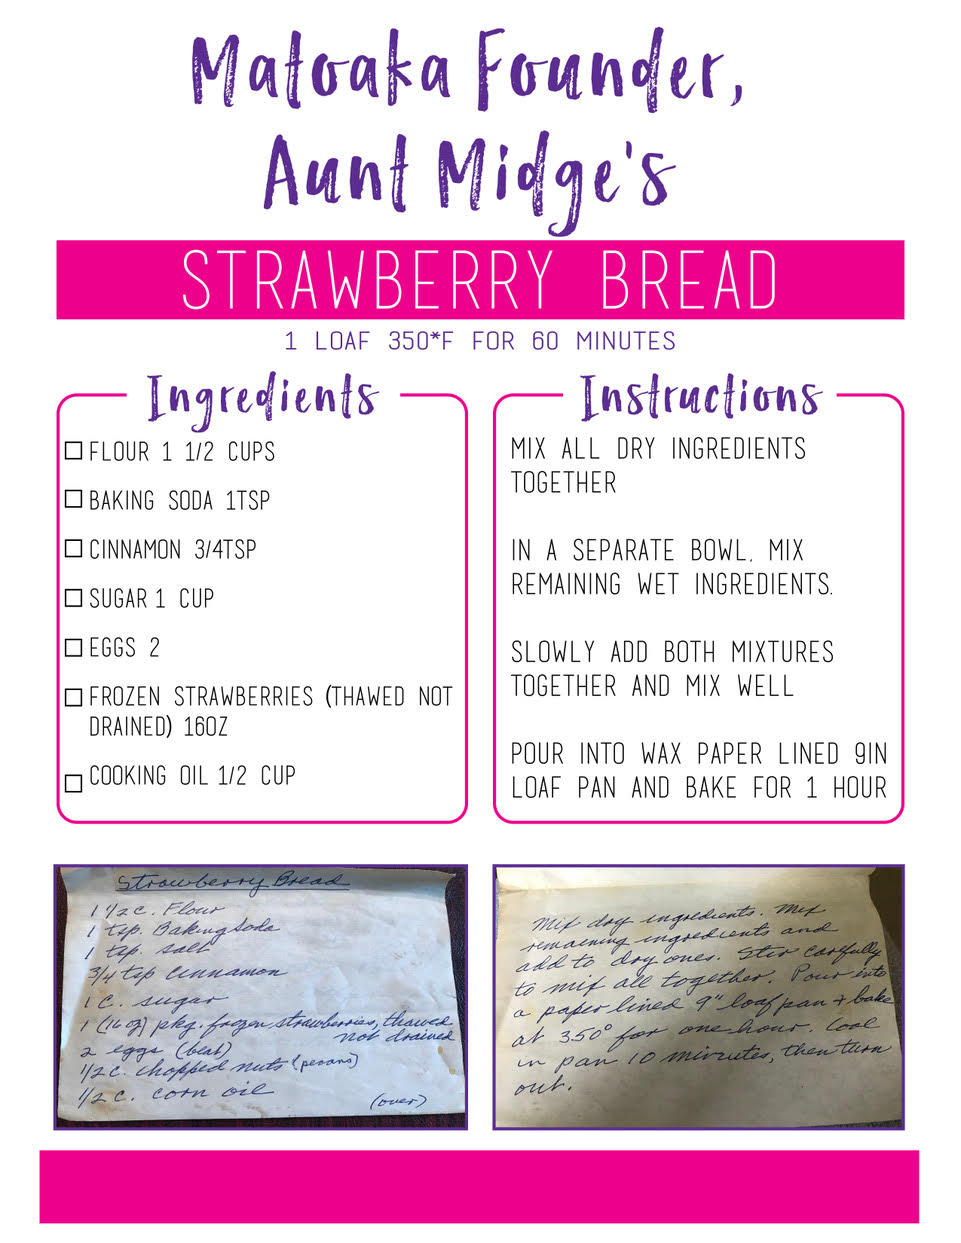 Matoaka Founder,
Aunt Midge's
STRAWBERRY BREAD
1 LOAF 350*F FOR 60 MINUTES
Ingredients
FLOUR 1 1/2 CUPS
BAKING SODA 1TSP
CINNAMON 3/4TSP
SUGAR 1 CUP
EGGS 2
FROZEN STRAWBERRIES (THAWED NOT
DRAINED) 16OZ
COOKING OIL 1/2 CUP
Instructions
MIX ALL DRY INGREDIENTS
TOGETHER
IN A SEPARATE BOWL, MIX
REMAINING WET INGREDIENTS.
SLOWLY ADD BOTH MIXTURES
TOGETHER AND MIX WELL
POUR INTO WAX PAPER LINED 9IN
LOAF PAN AND BAKE FOR 1 HOUR
Strawberry Bread
1 1/2 c. Flour
1 tsp. Baking Soda
1 tsp. salt
3/4 tsp cinnamon
1 C. sugar
1 (16 oz) pkg. frozen strawberries, thawed
not drained
2 eggs (beat)
1/2 c. chopped nuts (pecans)
1/2 c. corn oil
(over)
Mix dry ingredients. Mix
remaining ingredients and
add to dry ones. Stir carefully
to mix all together. Pour into
a paper lined 9" loaf pan + bake
at 350° for one hour. Cool
in pan 10 minutes, then turn
out.